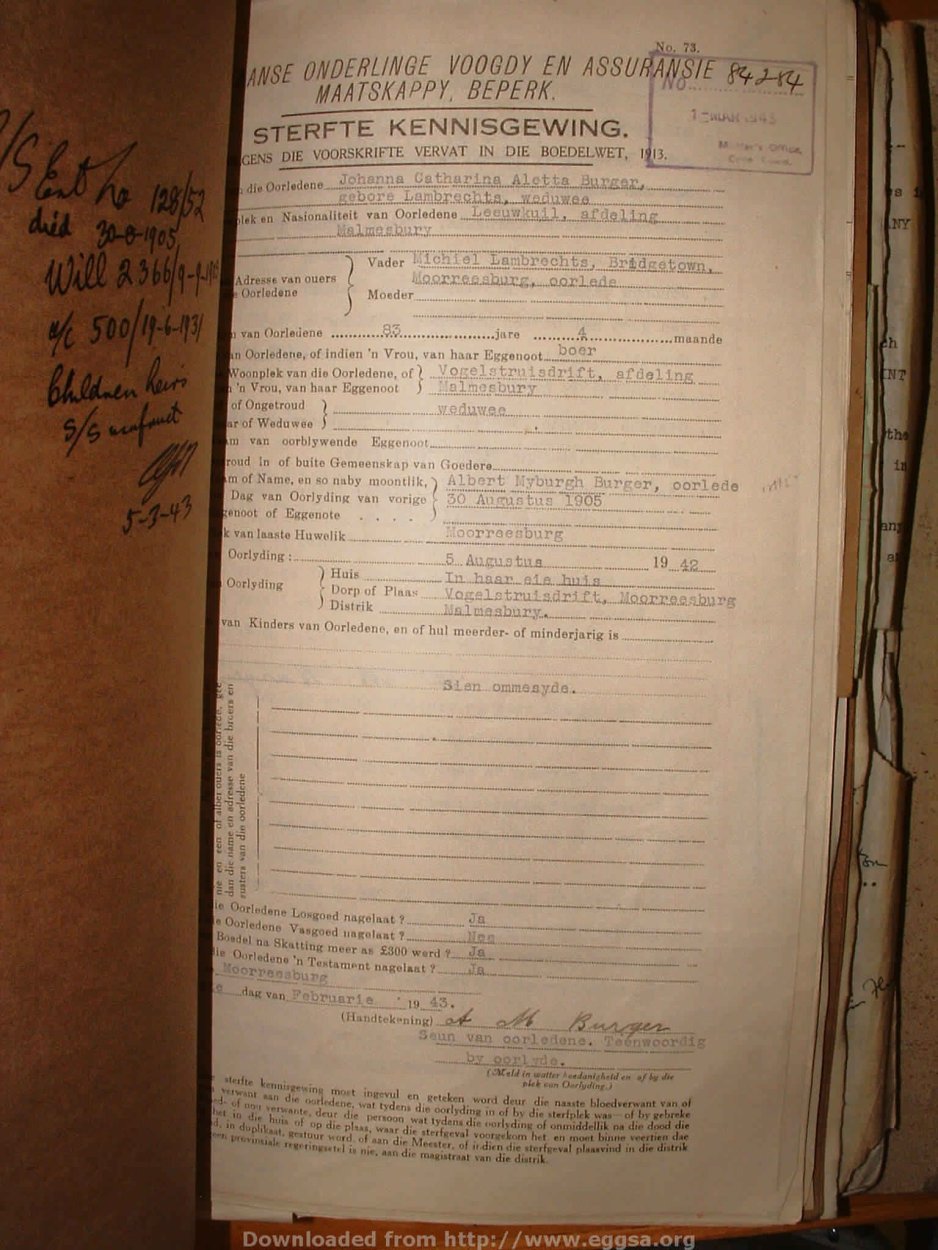 Est No 128/52
died 30-8-1905
Will 2366/9-9-
a/c 500/19-6-1931
Children heirs
S/S
5-3-43
No. 73.
ANSE ONDERLINGE VOOGDY EN ASSURANSIE
MAATSKAPPY, BEPERK.
NO. 84284
1 - MAR 1943
Master's Office,
STERFTE KENNISGEWING.
GENS DIE VOORSKRIFTE VERVAT IN DIE BOEDELWET, 1913.
die Oorledene Johanna Catharina Aletta Burger,
gebore Lambrechts, weduwee
plek en Nasionaliteit van Oorledene Leeuwkuil, afdeling
Malmesbury
Adresse van ouers
Oorledene
Vader Michiel Lambrechts, Bridgetown,
Moorreesburg, oorlede
Moeder
van Oorledene 83 jare 4 maande
Oorledene, of indien 'n Vrou, van haar Eggenoot boer
Woonplek van die Oorledene, of
'n Vrou, van haar Eggenoot
Vogelstruisdrift, afdeling
Malmesbury
of Ongetroud
ar of Weduwee
weduwee
am van oorblywende Eggenoot
roud in of buite Gemeenskap van Goedere
am of Name, en so naby moontlik,
Dag van Oorlyding van vorige
genoot of Eggenote
Albert Myburgh Burger, oorlede
30 Augustus 1905
k van laaste Huwelik Moorreesburg
Oorlyding : 5 Augustus 19 42
Oorlyding
Huis In haar eie huis
Dorp of Plaas Vogelstruisdrift, Moorreesburg
Distrik Malmesbury.
van Kinders van Oorledene, en of hul meerder- of minderjarig is
Sien ommesyde.
nie en een of albei ouers is oorlede, gee
dan die name en adresse van die broers en
susters van die oorledene
ie Oorledene Losgoed nagelaat ? Ja
ie Oorledene Vasgoed nagelaat ? Nee
Boedel na Skatting meer as £300 werd ? Ja
die Oorledene 'n Testament nagelaat ? Ja
Moorreesburg
dag van Februarie 19 43.
(Handtekening) A M Burger
Seun van oorledene. Teenwoordig
by oorlyde.
(Meld in watter hoedanigheid en of by die
plek van Oorlyding.)
sterfte kennisgewing moet ingevul en geteken word deur die naaste bloedverwant van of
verwant aan die oorledene, wat tydens die oorlyding in of by die sterfplek was—of by gebreke
of nou verwante, deur die persoon wat tydens die oorlyding of onmiddellik na die dood die
het in die huis of op die plaas, waar die sterfgeval voorgekom het en moet binne veertien dae
in duplikaat, gestuur word, of aan die Meester, of indien die sterfgeval plaasvind in die distrik
een provinsiale regeringsetel is nie, aan die magistraat van die distrik.
Downloaded from http://www.eggsa.org